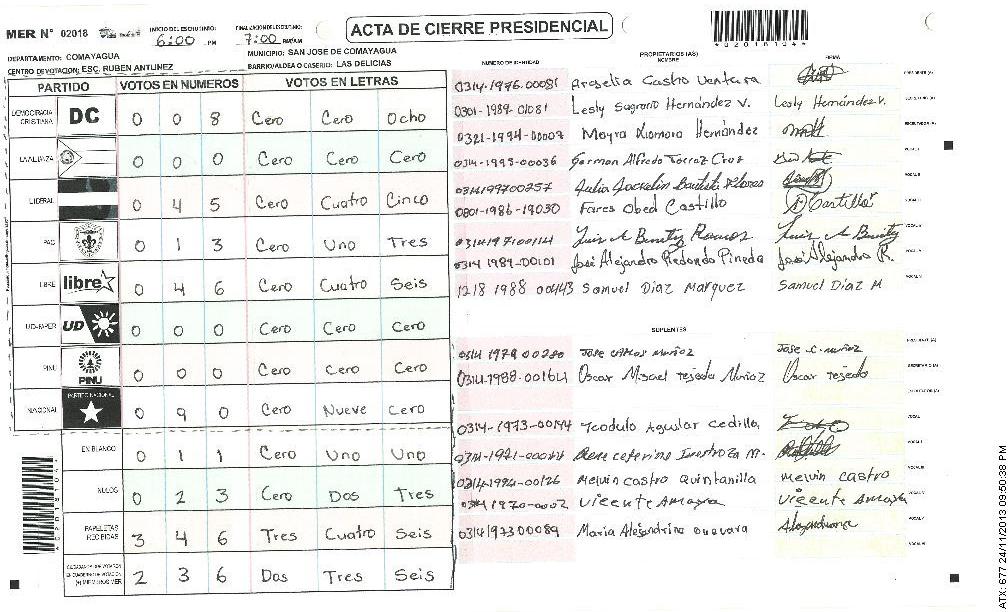 MER N° 02018
INICIO DEL ESCRUTINIO: 6:00 PM
FINALIZACION DE ESCRUTINIO: 7:00 PM/AM
ACTA DE CIERRE PRESIDENCIAL
DEPARTAMENTO: COMAYAGUA
MUNICIPIO: SAN JOSE DE COMAYAGUA
CENTRO DE VOTACION: ESC. RUBEN ANTUNEZ
BARRIO/ALDEA O CASERIO: LAS DELICIAS
PARTIDO VOTOS EN NUMEROS VOTOS EN LETRAS
DEMOCRACIA CRISTIANA DC 0 0 8 Cero Cero Ocho
LA ALIANZA 0 0 0 Cero Cero Cero
LIBERAL 0 4 5 Cero Cuatro Cinco
PAC 0 1 3 Cero Uno Tres
LIBRE libre 0 4 6 Cero Cuatro Seis
UD-FAPER UD 0 0 0 Cero Cero Cero
PINU PINU 0 0 0 Cero Cero Cero
NACIONAL PARTIDO NACIONAL 0 9 0 Cero Nueve Cero
EN BLANCO 0 1 1 Cero Uno Uno
NULOS 0 2 3 Cero Dos Tres
PAPELETAS RECIBIDAS 3 4 6 Tres Cuatro Seis
2 3 6 Dos Tres Seis
NUMERO DE IDENTIDAD PROPIETARIOS (AS) NOMBRE FIRMA
0314-1976-00081 Argelia Castro Ventura
0301-1989-01081 Lesly Sagrario Hernández V. Lesly Hernández V.
0321-1994-00007 Mayra Xiomara Hernández
0314-1998-00036 German Alfredo Torrez Cruz
0314199700257 Julia Jackelin Bautista Flores
0801-1986-19030 Fares Obed Castillo Castillo
0314197100114 Luis A Benitez Ramos Luis A Benitez
0314 1989-00101 José Alejandro Redondo Pineda José Alejandro R.
1218 1988 00443 Samuel Diaz Marquez Samuel Diaz M
SUPLENTES
0314 1979 00280 Jose Carlos Muñoz Jose C. Muñoz
0314-1988-00164 Oscar Misael Tejeda Muñoz Oscar Tejeda
0314-1973-00144 Teodulo Aguilar Cedillo
Melvin Castro Quintanilla Melvin Castro
Vicente Amaya Vicente Amaya
0314197300089 Maria Alejandrina Guevara
ATX: 677 24/11/2013 09:50:38 PM